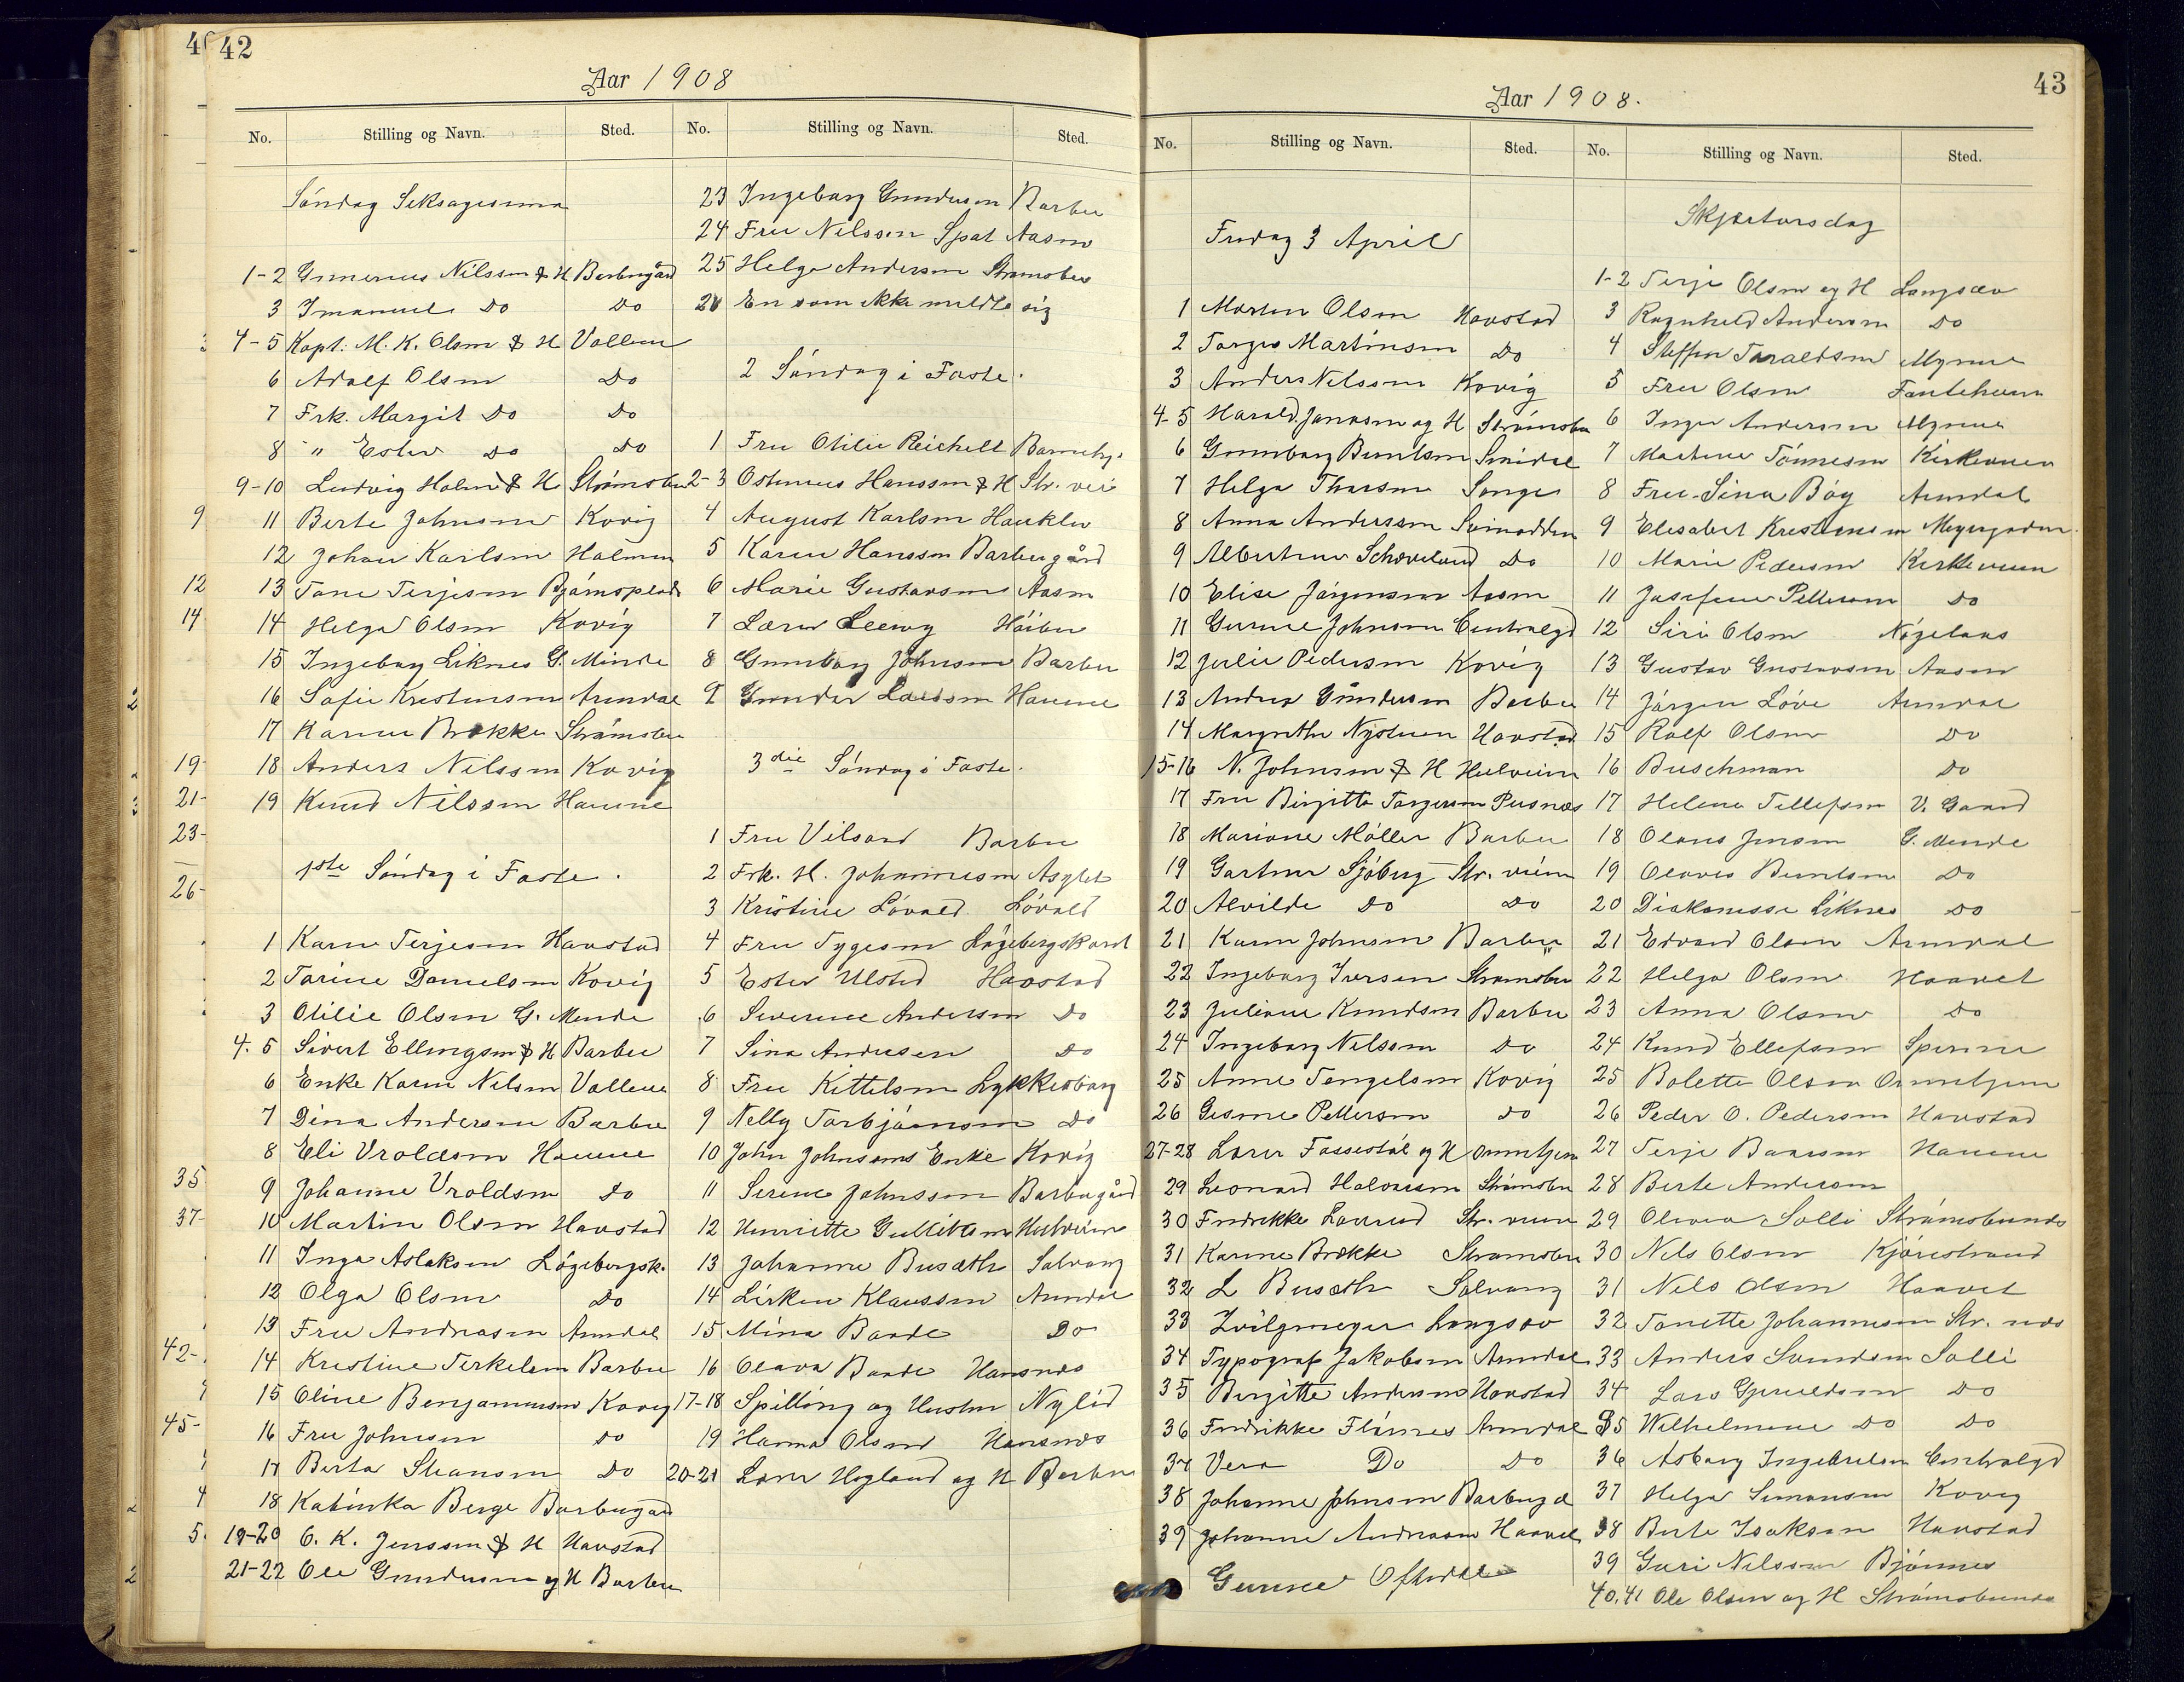 42
Aar 1908
No. Stilling og Navn. Sted.
Søndag Seksagesima
1-2 Gunerius Nilssen & H Barbugård
3 Imanuel Do Do
4-5 Kapt. M. K. Olsen & H Vollene
6 Adolf Olsen Do
7 Frk. Margit Do Do
8 " Ester Do Do
9-10 Ludvig Holm & H Strømsbu
11 Berte Johnsen Kovig
12 Johan Karlsen Holmen
13 Tone Terjesen Bjørnsplads
14 Helga Olsen Kovig
15 Ingeborg Liknes G. Minde
16 Sofie Kristensen Arendal
17 Karen Brække Strømsbu
18 Anders Nilssen Kovig
19 Knud Nilssen Havene
1ste Søndag i Faste.
1 Karen Terjesen Havstad
2 Torine Danielsen Kovig
3 Otilie Olsen G. Mende
4.5 Sivert Ellingsen & H Barbu
6 Enke Karen Nilsen Vollene
7 Dina Andersen Barbu
8 Eli Vroldsen Havene
9 Johanne Vroldsen Do
10 Martin Olsen Havstad
11 Inga Aslaksen Løgebergsk.
12 Olga Olsen Do
13 Fru Andreasen Arendal
14 Kristine Terkelsen Barbu
15 Oline Benjaminsen Kovig
16 Fru Johnsen Do
17 Berta Do
18 Katinka Berge Barbugård
19-20 O. K. Jenssen & H Havstad
21-22 Ole Gundersen og H Barbu
No. Stilling og Navn. Sted.
23 Ingeborg Gundersen Barbu
24 Fru Nilssen Spat Aasen
25 Helge Andersen Strømsbu
26 En som ikke meldte sig
2 Søndag i Faste.
1 Fru Otilie Reichelt Barnehj.
2-3 Ostenius Hanssen & H Str. vei
4 August Karlsen Haukler
5 Karen Hanssen Barbugård
6 Marie Gustavsen Aasen
7 Lærer Leewy Høibu
8 Gunborg Johnsen Barbu
9 Gunder Larssen Havene
3die Søndag i Faste.
1 Fru Vilsard Barbu
2 Frk. H. Johannesen Asylet
3 Kristine Løvold Løvold
4 Fru Tygesen
5 Ester Ulsted Havstad
6 Severine Andersen Do
7 Sina Andersen Do
8 Fru Kittelsen Lykkesborg
9 Nelly Torbjørnsen Do
10 John Johnsens Enke Kovig
11 Serene Johnssen Barbugård
12 Henriette Gullitsen Hulveien
13 Johanne Busæth Solvang
14 Lisken Klaussen Arendal
15 Mina Baade Do
16 Olava Baade Hansnes
17-18 Spilling og Hustru Nylid
19 Hanna Olsen Hansnes
20-21 Lærer Hogland og H Barbu
43
Aar 1908.
No. Stilling og Navn. Sted.
Fredag 3 April
1 Morten Olsen Havstad
2 Torges Martinsen Do
3 Anders Nilssen Kovig
4-5 Harald Jonassen og H Strømsbu
6 Gunborg Berntsen Smidal
7 Helga Thorsen Songe
8 Anna Anderssen Svinodden
9 Albertine Schoveland Do
10 Elise Jørgensen Aasen
11 Gurine Johnsen Centralgd
12 Julie Pedersen Kovig
13 Andrea Gundersen Barbu
14 Margrethe Nystuen Havstad
15-16 N. Johnsen & H Hulveien
17 Fru Birgitte Torgersen Pusnes
18 Mariane Møller Barbu
19 Gartner Sjøberg Str. veien
20 Alvilde Do Do
21 Karen Johnsen Barbu
22 Ingeborg Iversen Strømsbu
23 Juliane Knudsen Barbu
24 Ingeborg Nilssen Do
25 Anne Tengelsen Kovig
26 Gesine Pettersen Do
27-28 Lærer Fossestøl og H Ormetjen
29 Leonard Halvorsen Strømsbu
30 Fredrikke Laurud Str. veien
31 Karine Brække Strømsbu
32 L Busæth Solvang
33 Zvilgmeyer Langsæv
34 Typograf Jakobsen Arendal
35 Birgitte Andersen Havstad
36 Fredrikke Flørnes Arendal
37 Vera Do Do
38 Johanne Johnsen Barbugd
39 Johanne Andreasen Haavet
Gurine Oftedal
No. Stilling og Navn. Sted.
Skjærtorsdag
1-2 Terje Olsen og H Langsæv
3 Ragnhild Andersen Do
4 Steffen Taraldsen Myrene
5 Fru Olsen
6 Inger Andersen Myrene
7 Martine Tønnesen Kirkeveien
8 Fru Sina Bøg Arendal
9 Elisabet Kristensen Meyergaden
10 Marie Pedersen Kirkeveien
11 Josefine Pettersen Do
12 Siri Olsen
13 Gustav Gustavsen Aasen
14 Jørgen Løve Arendal
15 Rolf Olsen Do
16 Buschman Do
17 Helene Tellefsen V. Gaard
18 Olaves Jensen G. Mende
19 Olaves Berntsen Do
20 Diakonesse Liknes Do
21 Edvard Olsen Arendal
22 Helga Olsen Haavet
23 Anna Olsen Do
24 Knud Ellefsen Sperene
25 Bolette Olsen Ormetjen
26 Peder O. Pedersen Havstad
27 Terje Baarsen Havene
28 Berte Andersen
29 Olivia Solli Strømsbunes
30 Nils Olsen Kjørestrand
31 Nils Olsen Haavet
32 Tonette Johannesen Str. nes
33 Anders Svendsen Solli
34 Lars Gjeruldsen Do
35 Wilhelmine Do Do
36 Asborg Ingebretsen Centralgd
37 Helga Simonsen Kovig
38 Berte Isaksen Havstad
39 Guri Nilssen Bjønnes
40.41 Ole Olsen og H Strømsbunes